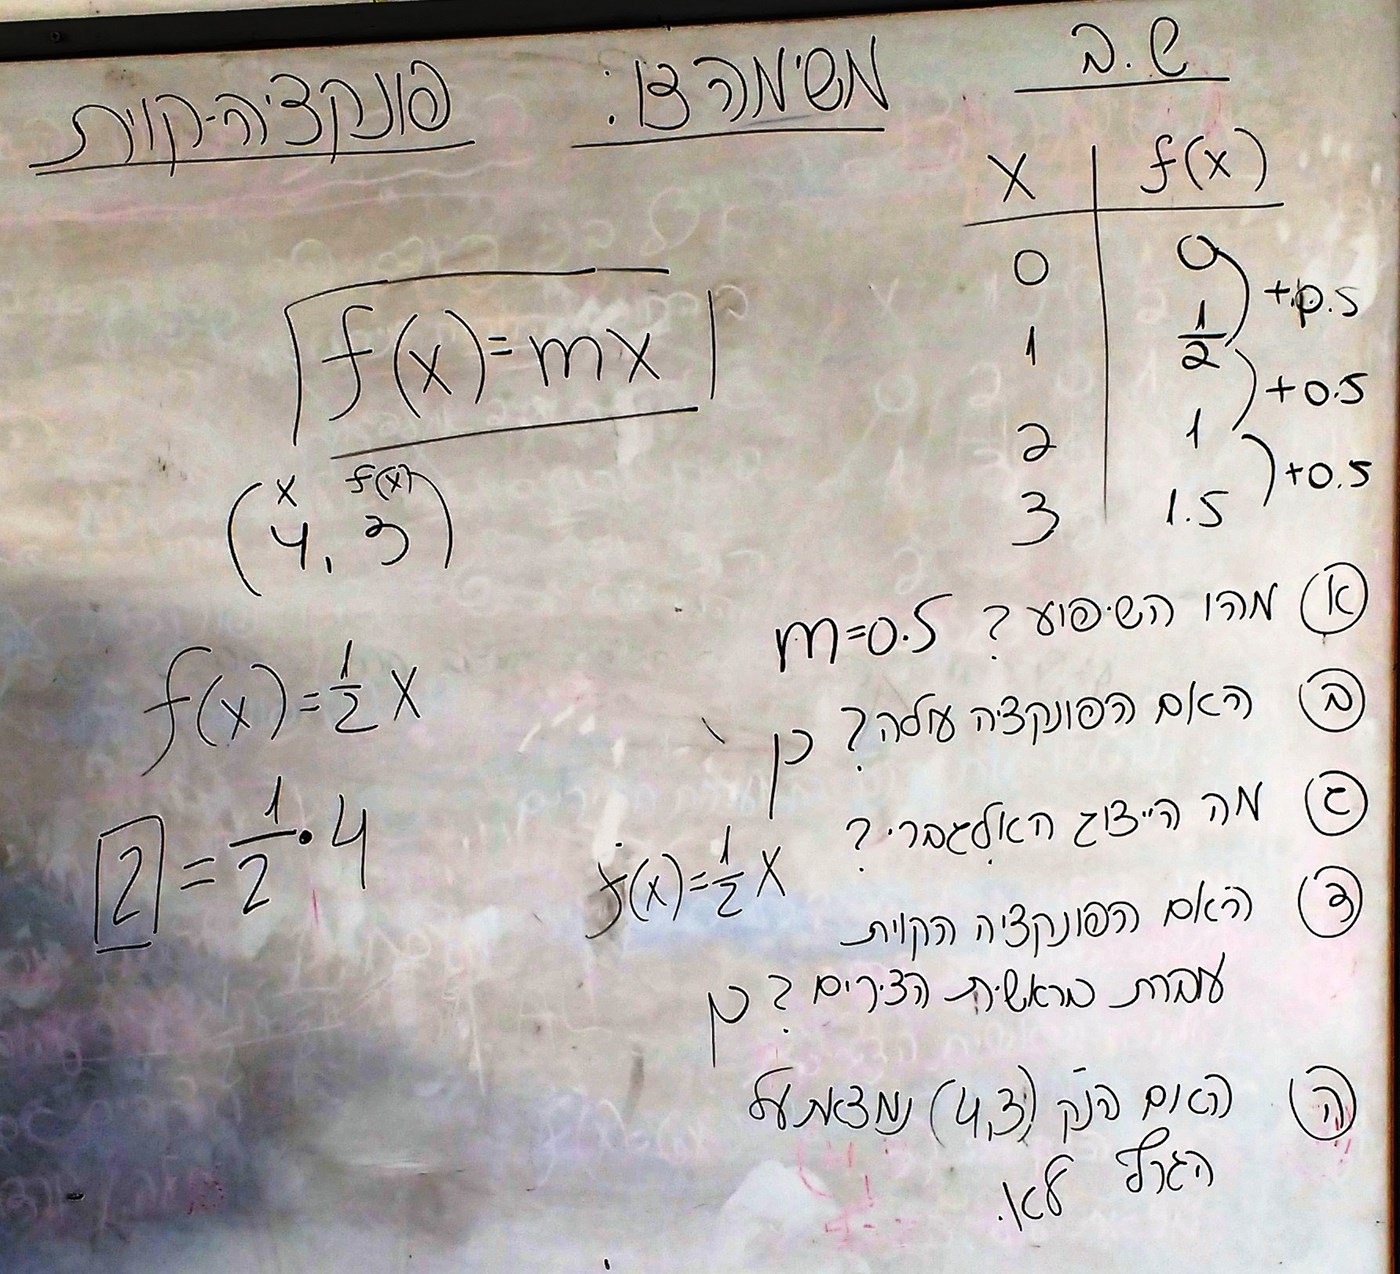 ש.ב
משימה 31: פונקציה-קווית
x | f(x)
0 | 0
+0.5
1 | 1/2
+0.5
2 | 1
+0.5
3 | 1.5
א מהו השיפוע? m=0.5
ב האם הפונקציה עולה? כן
ג מה הייצוג האלגברי?
f(x)=1/2 x
ד האם הפונקציה הקוית
עוברת בראשית הצירים? כן
ה האם הנק' (4,3) נמצאת על
הגרף לא.
f(x)=mx
x f(x)
(4, 3)
f(x)=1/2 x
2 = 1/2 • 4